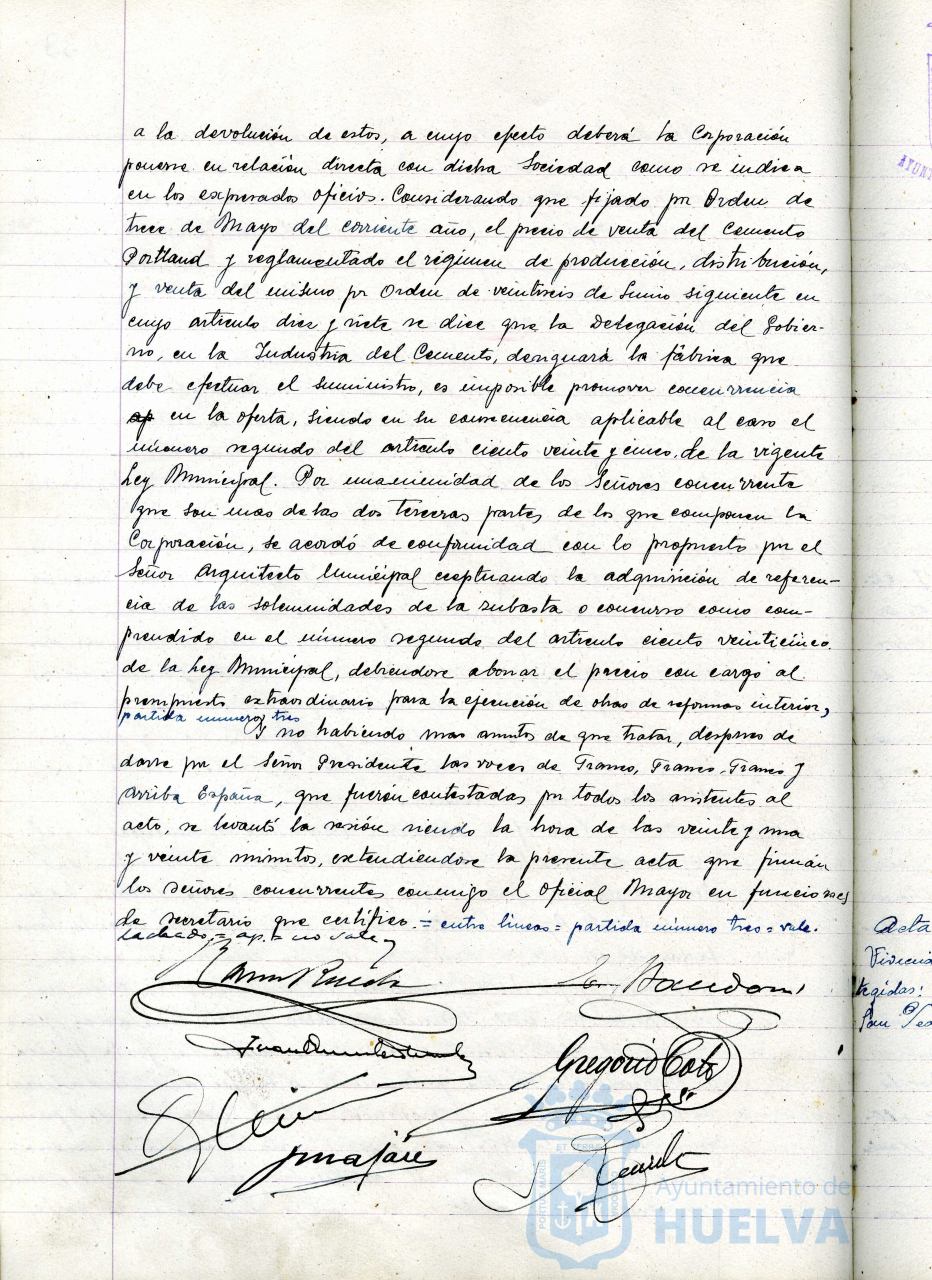 a la devolución de estos, a cuyo efecto deberá la Corporación
ponerse en relación directa con dicha Sociedad como se indica
en los expresados oficios. Considerando que fijado por Orden de
trece de Mayo del corriente año, el precio de venta del Cemento
Portland y reglamentado el régimen de producción, distribución,
y venta del mismo por Orden de veintiseis de Junio siguiente en
cuyo articulo diez y siete se dice que la Delegación del Gobier-
no, en la Industria del Cemento, designará la fábrica que
debe efectuar el suministro, es imposible promover concurrencia
ap en la oferta, siendo en su consecuencia aplicable al caso el
número segundo del articulo ciento veinte y cinco, de la vigente
Ley Municipal. Por unanimidad de los Señores concurrente
que son mas de las dos terceras partes de los que componen la
Corporación, se acordó de conformidad con lo propuesto por el
Señor Arquitecto Municipal exeptuando la adquisición de referen-
cia de las solemnidades de la subasta o concurso como com-
prendido en el número segundo del articulo ciento veinticinco
de la Ley Municipal, debiendose abonar el precio con cargo al
presupuesto extraordinario para la ejecución de obras de reformas interior,
partida número tres
Y no habiendo mas asuntos de que tratar, despues de
darse por el Señor Presidente las voces de Franco, Franco, Franco y
Arriba España, que fuerón contestadas por todos los asistentes al
acto, se levantó la sesión siendo la hora de las veinte y una
y veinte minutos, extendiendose la presente acta que firmán
los señores concurrentes conmigo el Oficial Mayor en funciones
de secretario que certifico. = entre lineas = partida número tres = vale.
tachado = ap. = no vale
Gregorio Coto
Acta
Vivien
tegidas:
San Ped
Ayuntamiento de
HUELVA